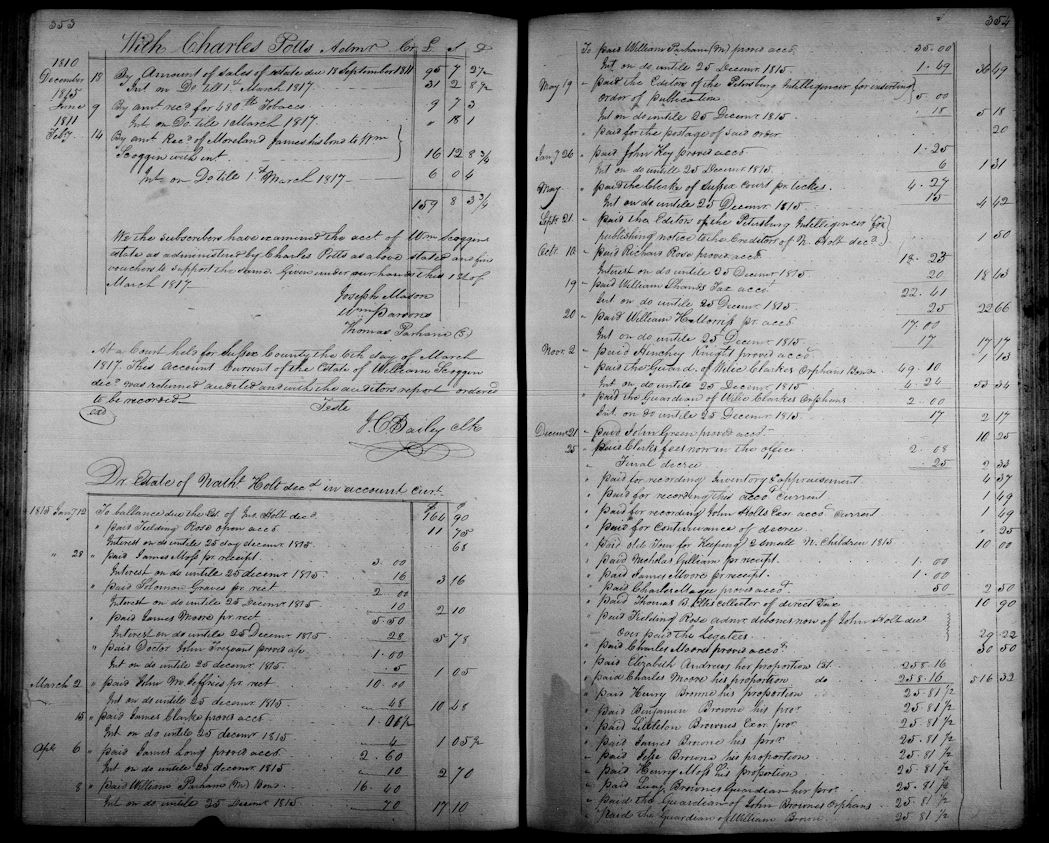 353
With Charles Potts Admr Cr. £ S D
1810
December 18 By Amount of sales of estate due 18 September 1811 95 7 2½
Int on Do. till 1st March 1817 31 2 8½
1815
June 9 By amt recd for 480 lb Tobacco 9 7 3
Int on Do. tile 1 March 1817 " 18 1
1811
Feby 14 By amt Recd of Moreland James his bond to Wm
Scoggin with int 16 12 8¾
Int on Do till 1st March 1817 6 0 4
159 8 3¾
We the subscribers have examined the acct of Wm Scoggins
estate as administered by Charles Potts as above stated and find
vouchers to support the same. Given under our hands this 1st of
March 1817
Joseph Mason
Wm Parsons
Thomas Parham (S)
At a Court held for Sussex County the 6th day of March
1817. This Account Current of the Estate of William Scoggin
decd was returned audited and with the auditors report ordered
to be recorded
Teste
J C Bailey Clk
Dr. Estate of Nathl Holt decd in account curt
1815 Jany 12 To ballance due the Est. of Jno. Holt decd 164 90
" paid Fielding Rose upon acct 11 75
Interest on do untile 25 day decemr. 1815 68
" 28 " paid James Moss pr. receipt 3 00
Interest on do untile 25 decemr. 1815 16 3 16
" paid Solomon Graves pr. rect 2 00
Interest on do untile 25 Decemr. 1815 10 2 10
" paid James Moore pr. rect 5.50
Interest on do untile 25 Decemr. 1815 28 5 78
" paid Doctor John Trezvant proved a/c 1.00
Int on do untile 25 decemr. 1815 5 1 05
March 2 " paid John M. Jeffries pr. rect 10.00
Int on do untile 25 decemr 1815 48 10 48
15 " paid James Clarke proved acct 1.01½
Int on do untile 25 decemr 1815 4 1 05½
Apl 6 " paid James Long proved acct 2.60
Int on do untile 25 decemr 1815 10 2 70
8 " paid William Parham (M) Bond 16.40
Int on do untile 25 Decemr 1815 70 17 10
354
To paid William Parham (M) proved acct 35.00
Int on do, untile 25 Decemr. 1815 1.49 36 49
May 19 " paid the Editors of the Petersburg Intelligencer for inserting
order of publication 5.00
Int on do untile 25 Decemr 1815 .18 5 18
" paid for the postage of said order 20
26 " paid John Key proved acct 1.25
Int on do untile 25 Decemr 1815 6 1 31
May " paid the Clerke of Sussex Court pr. tickes 4.27
Int on do untile 25 Decemr 1815 15 4 42
Septr 21 " paid the Editors of the Petersburg Intelligencer for
publishing notice to the Creditors of N. Holt decd 1 50
Octr. 10 " paid Richard Rose proved acct 18.23
Interest on do untile 25 Decemr 1815 20 18 43
19 " paid William Shands Tax acct 22.41
Int on do untile 25 Decemr 1815 25 22 66
20 " paid William H. Morriss pr. acct 17.00
Int on do untile 25 Decemr 1815 17 17 17
Novr. 2 " paid Hinchey Knight proved acct 1 13
" paid the Guard. of Wilie Clarkes Orphans Bond 49.10
Int on do untile 25 Decemr 1815 4.24 53 34
" paid the Guardian of Wilie Clarkes Orphans 2.00
Int. on do untile 25 Decemr 1815 17 2 17
Decemr 21 " paid John Green proved acct 10 25
25 " paid Clerks fees now in the office 2.08
" Final decree .25 2 33
" paid for recording Inventory & appraisement 4 37
" paid for recording this acct current 1 49
" paid for recording John Holts Exor acct current 1 49
" paid for Continuance of decree " 25
" paid old Tom for Keeping 2 small N. Children 1815 10 00
" paid Nicholas Gilliam pr receipt 1.00
" paid James Moore pr receipt 1.00
" paid Charles Magee proved acct 50 2 50
" paid Thomas B. collector of direct Tax 10 90
" paid Fielding Rose admr. debones non of John Holt decd
Over paid the Legatees 29 22
" paid Charles Moore proved acct 30 50
" paid Elizabeth Andrews her proportion Est. 258.16
" paid Charles Moore his proportion do 258.16 516 32
" paid Henry Browne his proportion 25.81½
" paid Benjamin Browne his pror 25.81½
" paid Littleton Brownes Exor pror 25.81½
" paid James Browne his pror 25.81½
" paid Jesse Browne his proportion 25.81½
" paid Henry Moss his proportion 25.81½
" paid Lucy Brownes Guardian her pror. 25.81½
" paid the Guardian of John Brownes Orphans 25.81½
" paid the Guardian of William Brown 25 81½